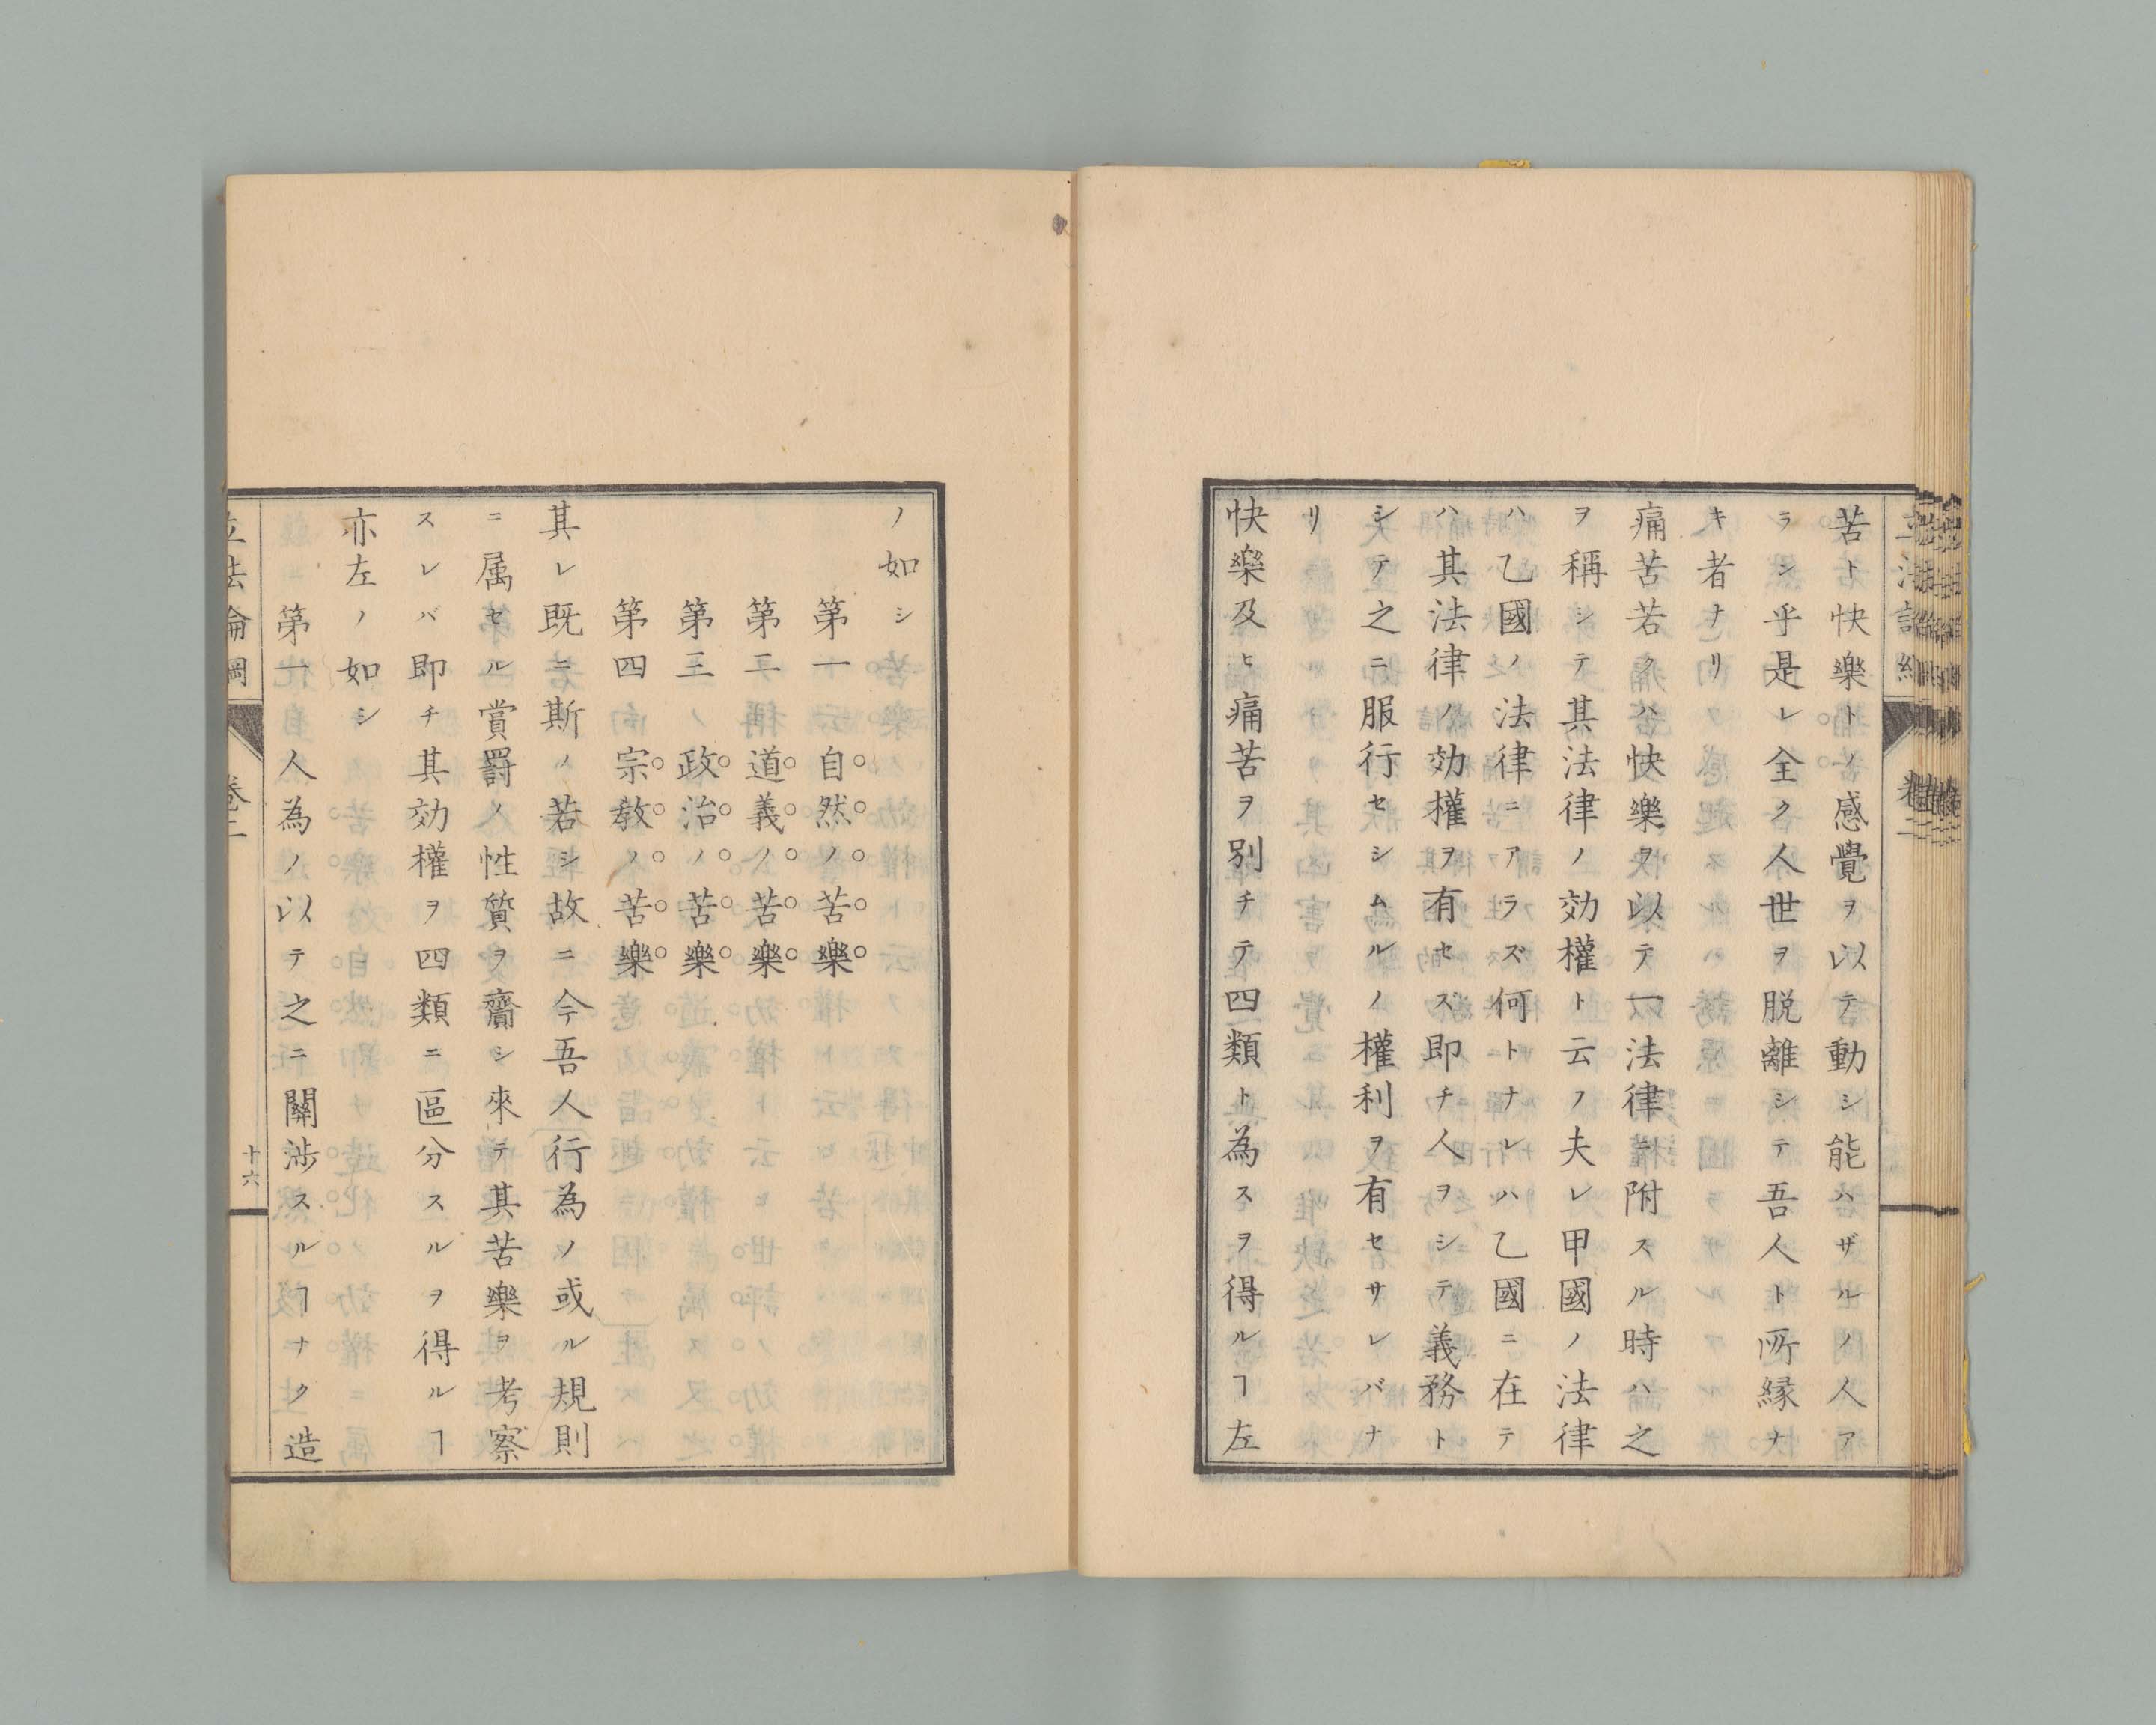 苦ト快樂トノ感覺ヲ以テ動シ能ハザルノ人ア
ラシ乎是レ全ク人世ヲ脱離シテ吾人ト所縁ナ
キ者ナリ
痛苦若クハ快樂ヲ以テ一法律ニ附スル時ハ之
ヲ稱シテ其法律ノ効權ト云フ夫レ甲國ノ法律
ハ乙國ノ法律ニアラズ何トナレハ乙國ニ在テ
ハ其法律ノ効權ヲ有セズ即チ人ヲシテ義務ト
シテ之ニ服行セシムルノ權利ヲ有セサレバナ
リ
快樂及ヒ痛苦ヲ別チテ四類ト為スヲ得ルヿ左
ノ如シ
第一 自然ノ苦樂
第二 道義ノ苦樂
第三 政治ノ苦樂
第四 宗教ノ苦樂
其レ既ニ斯ノ若シ故ニ今吾人行為ノ或ル規則
ニ属セル賞罰ノ性質ヲ齎シ來テ其苦樂ヲ考察
スレバ即チ其効權ヲ四類ニ區分スルヲ得ルヿ
亦左ノ如シ
第一人為ノ以テ之ニ關渉スルヿナク造
立法論綱 卷二 十六